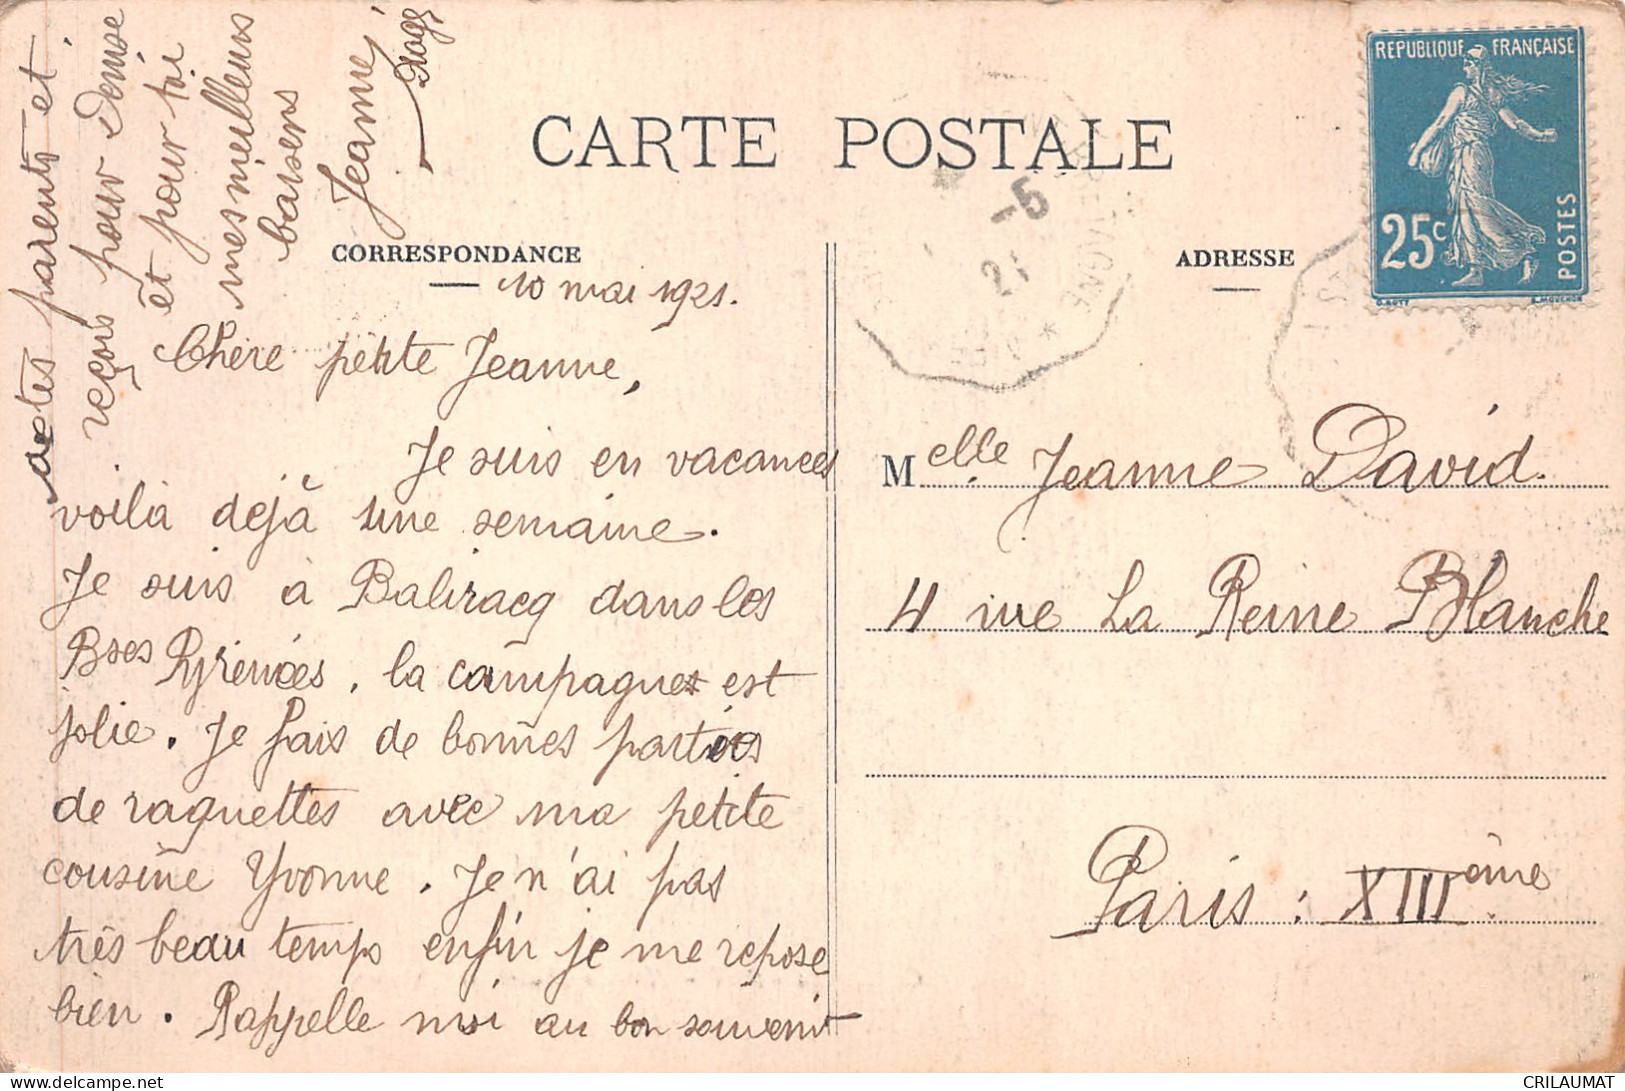 CARTE POSTALE
CORRESPONDANCE
ADRESSE
REPUBLIQUE FRANÇAISE
25c
POSTES
O. ROTY
E. MOUCHON
-5
21
BRETAGNE *
10 mai 1921.
Chère petite Jeanne,
Je suis en vacances
voilà déjà une semaine.
Je suis à Baliracq dans les
Bses Pyrénées, la campagne est
jolie. Je fais de bonnes parties
de raquettes avec ma petite
cousine Yvonne. Je n'ai pas
très beau temps enfin je me repose
bien. Rappelle moi au bon souvenir
de tes parents et
reçois pour Denise
et pour toi
mes meilleurs
baisers
Jeanne
Melle Jeanne David.
4 rue La Reine Blanche
Paris : XIIIème.
CRILAUMAT